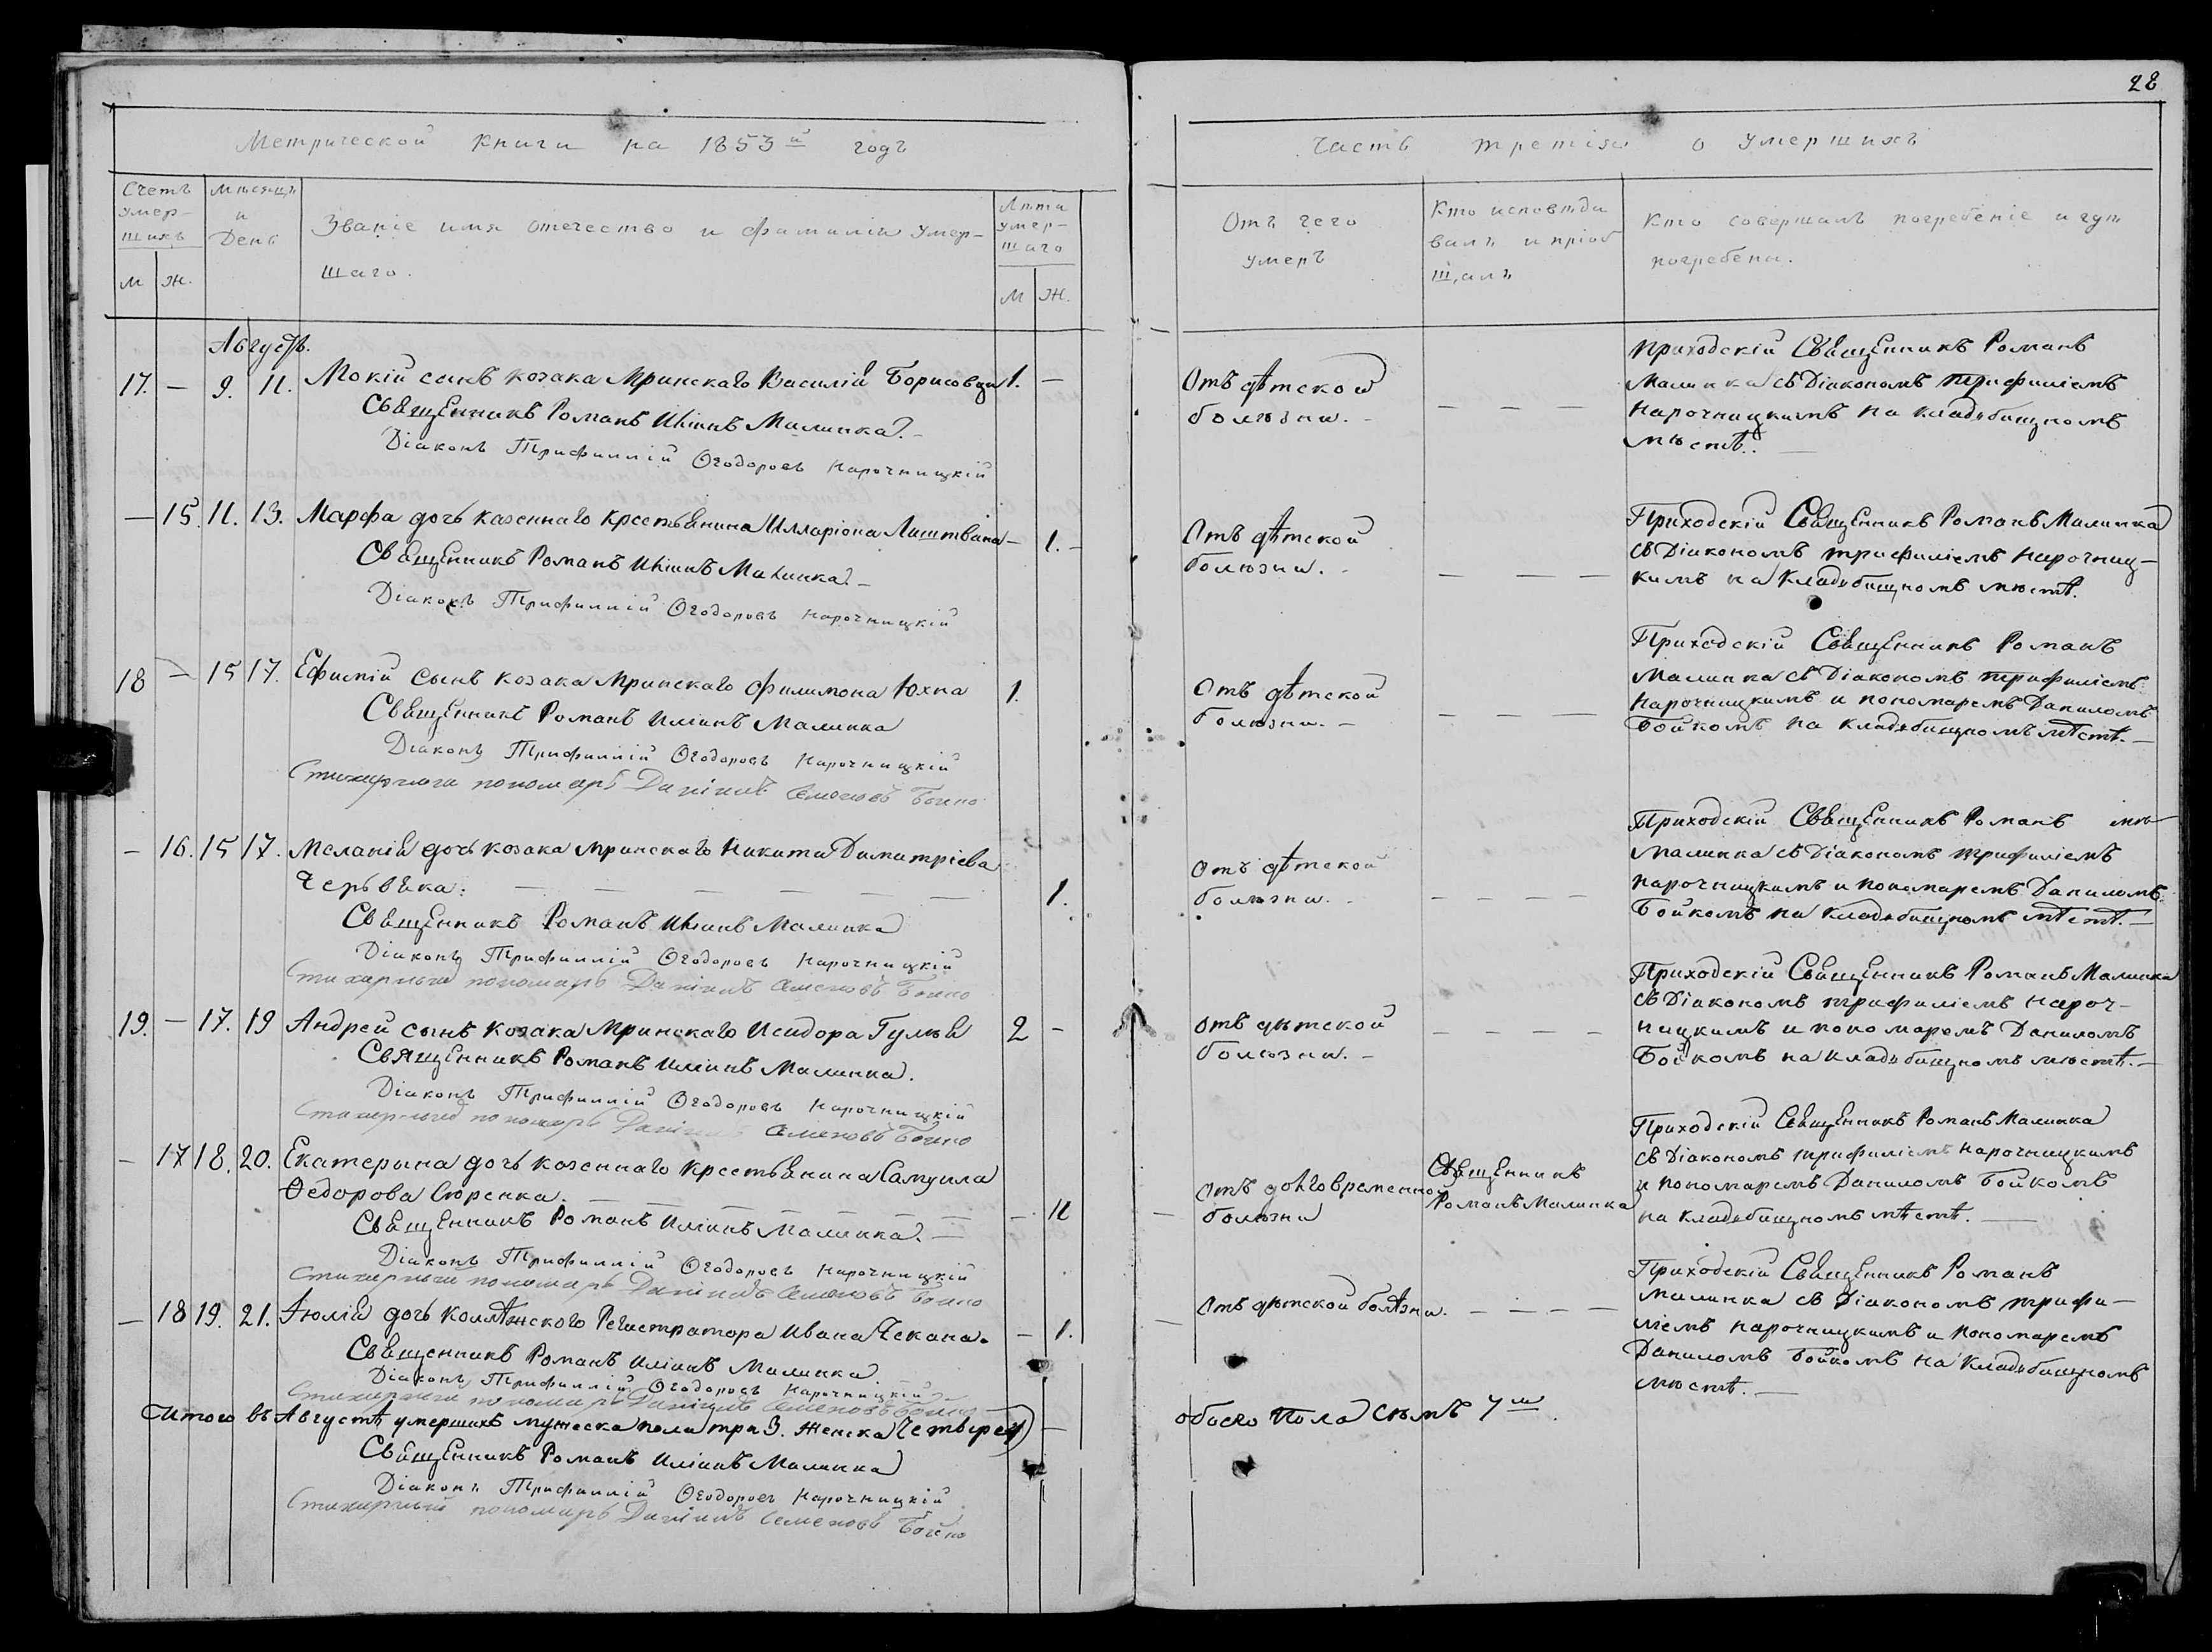 28
Метрической книги на 1853й годъ
Часть третія о умершихъ
Счетъ умер-шихъ
М Ж.
Мѣсяцъ и День
Званіе имя отечество и фамилія умер-
шаго.
Лѣта умер-шаго
М Ж.
Отъ чего
умеръ
Кто исповѣды
валъ и пріоб
щалъ
Кто совершалъ погребеніе и гдѣ
погребены.
Августъ.
17. — 9. 11. Мокій сынъ козака Мринскаго Василія Борисовца 1. —
Священникъ Романъ Иліинъ Малинка. —
Діаконъ Трифиллій Ѳеодоровъ Нарочницкій
Отъ дѣтской
болѣзни. —
— — —
Приходскій Священникъ Романъ
Малинка съ Діакономъ Трифиліемъ
Нарочницкимъ на кладбищномъ
мѣстѣ. —
— 15. 11. 13. Марфа дочь казеннаго крестьянина Илларіона Лаштвина — 1. —
Священникъ Романъ Иліинъ Малинка. —
Діаконъ Трифиллій Ѳеодоровъ Нарочницкій
Отъ дѣтской
болѣзни. —
— — —
Приходскій Священникъ Романъ Малинка
съ Діакономъ Трифиліемъ Нарочниц-
кимъ на кладбищномъ мѣстѣ.
18 — 15 17. Ефимій сынъ козака Мринскаго Филимона Юхна 1.
Священникъ Романъ Иліинъ Малинка
Діаконъ Трифиллій Ѳеодоровъ Нарочницкій
Стихарный пономарь Даніилъ Семеновъ Бойко
Отъ дѣтской
болѣзни. —
— — —
Приходскій Священникъ Романъ
Малинка съ Діакономъ Трифиліемъ
Нарочницкимъ и пономаремъ Даниломъ
Бойкомъ на кладбищномъ мѣстѣ. —
— 16. 15 17. Меланія дочь козака Мринскаго Никиты Димитріева
Червяка. — — — — — — 1.
Священникъ Романъ Иліинъ Малинка
Діаконъ Трифиллій Ѳеодоровъ Нарочницкій
Стихарный пономарь Даніилъ Семеновъ Бойко
Отъ дѣтской
болѣзни. —
— — — —
Приходскій Священникъ Романъ
Малинка съ Діакономъ Трифиліемъ
Нарочницкимъ и пономаремъ Даниломъ
Бойкомъ на кладбищномъ мѣстѣ. —
19. — 17. 19 Андрей сынъ козака Мринскаго Исидора Гулія 2 —
Священникъ Романъ Иліинъ Малинка.
Діаконъ Трифиллій Ѳеодоровъ Нарочницкій
Стихарный пономарь Даніилъ Семеновъ Бойко
Отъ дѣтской
болѣзни. —
— — — —
Приходскій Священникъ Романъ Малинка
съ Діакономъ Трифиліемъ Нароч-
ницкимъ и пономаремъ Даниломъ
Бойкомъ на кладбищномъ мѣстѣ. —
— 17 18. 20. Екатерына дочь казеннаго крестьянина Самуила
Ѳедорова Сюренка. — — — — — — 11
Священникъ Романъ Иліинъ Малинка. —
Діаконъ Трифиллій Ѳеодоровъ Нарочницкій
Стихарный пономарь Даніилъ Семеновъ Бойко
Отъ долговременной
болѣзни
Священникъ
Романъ Малинка
Приходскій Священникъ Романъ Малинка
съ Діакономъ Трифиліемъ Нарочницкимъ
и пономаремъ Даниломъ Бойкомъ
на кладбищномъ мѣстѣ. —
— 18 19. 21. Іюлія дочь коллѣжского Регистратора Ивана Чекана. — 1.
Священникъ Романъ Иліинъ Малинка
Діаконъ Трифиллій Ѳеодоровъ Нарочницкій
Стихарный пономарь Даніилъ Семеновъ Бойко
Отъ дѣтской болѣзни.
— — — —
Приходскій Священникъ Романъ
Малинка съ Діакономъ Трифи-
ліемъ Нарочницкимъ и пономаремъ
Даниломъ Бойкомъ на кладбищномъ
мѣстѣ. —
Итого въ Августѣ умершихъ мужеска пола три 3. Женска Четыре 4) —
обоего пола семъ 7м.
Священникъ Романъ Иліинъ Малинка
Діаконъ Трифиллій Ѳеодоровъ Нарочницкій
Стихарный пономарь Даніилъ Семеновъ Бойко